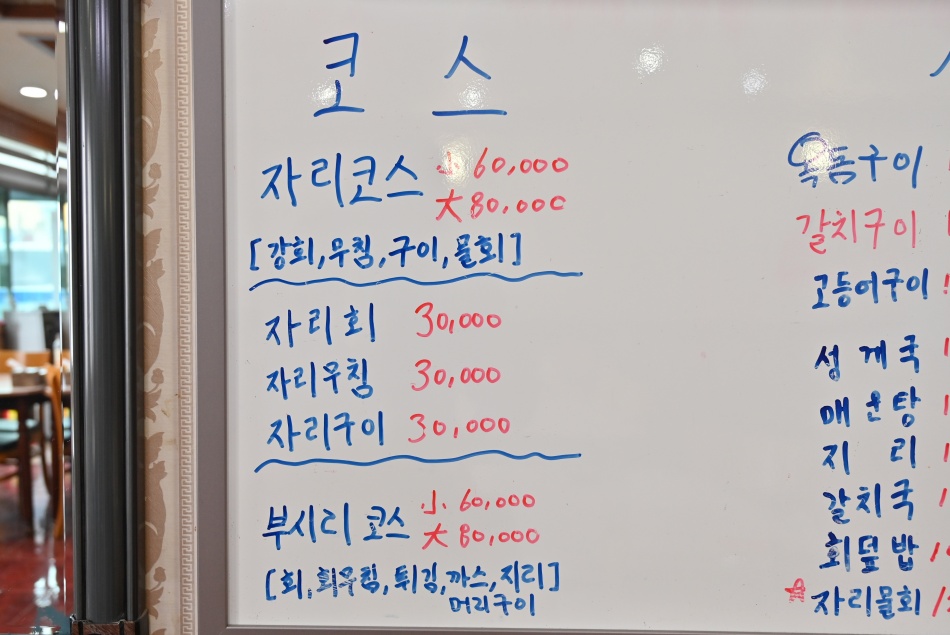 코스
자리코스 小 60,000
大 80,000
[강회, 무침, 구이, 물회]
자리회 30,000
자리무침 30,000
자리구이 30,000
부시리 코스 小 60,000
大 80,000
[회, 회무침, 튀김, 까스, 지리]
머리구이
옥돔구이
갈치구이
고등어구이
성게국
매운탕
지리
갈치국
회덮밥
자리물회